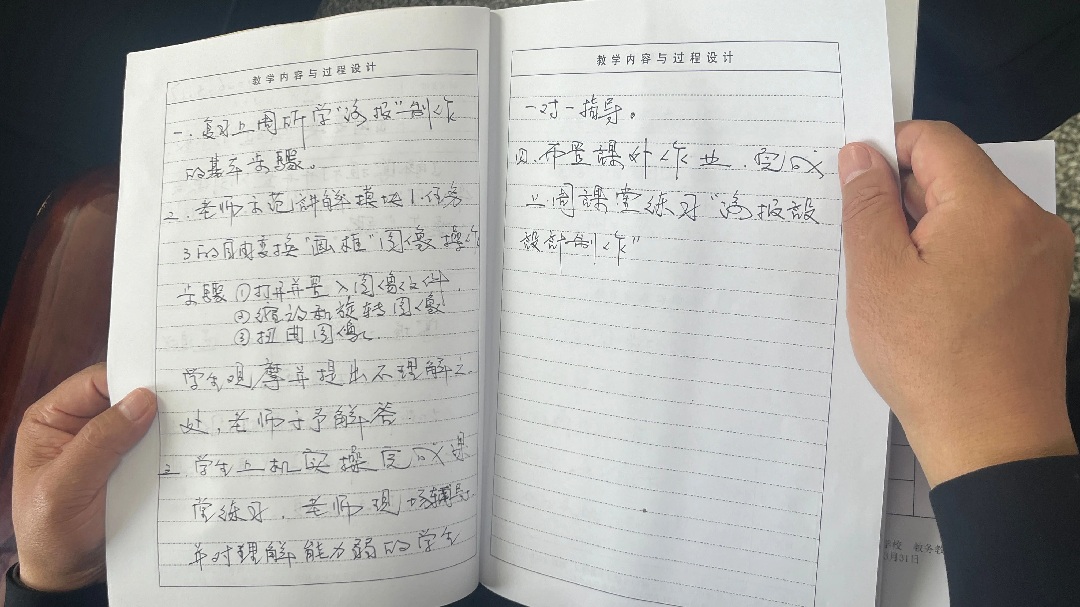 教学内容与过程设计
一.复习上周所学“海报”制作
的基本步骤。
二.老师示范讲解模块1.任务
3的自由变换“画框”图像操作
步骤①打开并置入图像文件.
②缩放和旋转图像
③扭曲图像.
学生观摩并提出不理解之
处,老师予予解答
三.学生上机实操完成课
堂练习.老师现场辅导.
并对理解能力弱的学生
教学内容与过程设计
一对一指导。
四.布置课外作业.完成
上周课堂练习“海报设
设计制作”
学校 教务
月31日